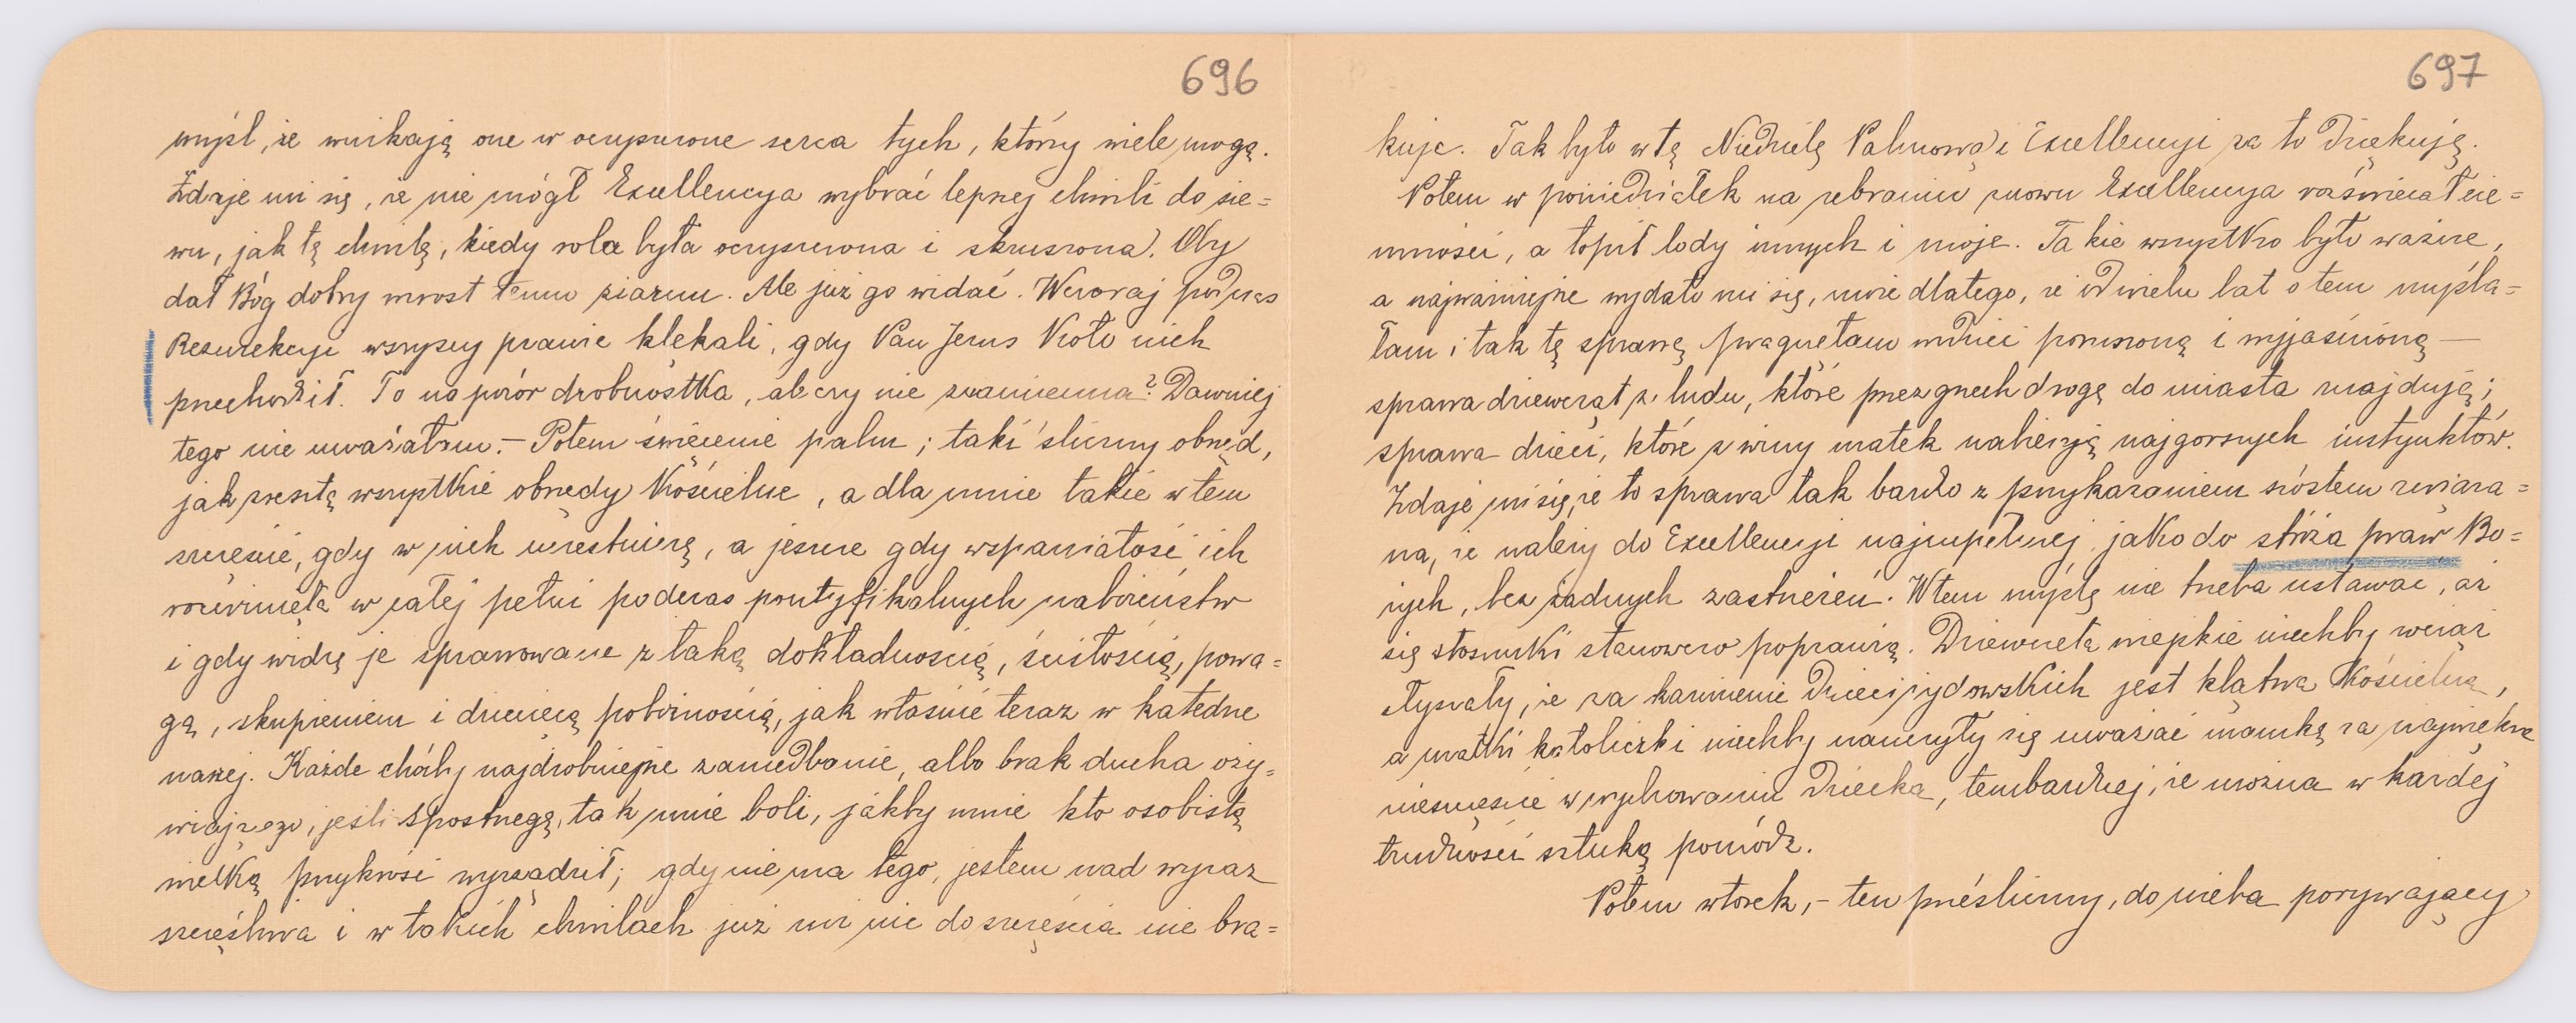 696
myśl, że wnikają one w oczyszczone serca tych, którzy wiele mogą.
Zdaje mi się, że nie mógł Excellencya wybrać lepszej chwili do sie=
wu, jak tą chwilę, kiedy rola była oczyszczona i skruszona. Oby
dał Bóg dobry wzrost temu ziarnu. Ale już go widać. Wczoraj podczas
Rezurekcyi wszyscy prawie klękali, gdy Pan Jezus koło nich
przechodził. To na pozór drobnostka, ale czy nie znamienna? Dawniej
tego nie uważałam. – Potem święcenie palm; taki śliczny obrzęd,
jak zresztą wszystkie obrzędy kościelne, a dla mnie takie w tem
szczęście, gdy w nich uczestniczę, a jeszcze gdy wspaniałość ich
rozwinięta w całej pełni podczas pontyfikalnych nabożeństw
i gdy widzę je sprawowane z taką dokładnością, ścisłością, powa=
gą, skupieniem i dziecięcą pobożnością, jak właśnie teraz w katedrze
naszej. Każde choćby najdrobniejsze zaniedbanie, albo brak ducha oży=
wiającego, jeśli spostrzegę, tak mnie boli, jakby mnie kto osobistą
wielką przykrość wyrządził; gdy nie ma tego, jestem nad wyraz
szczęśliwa i w takich chwilach już mi nic do szczęścia nie bra=
697
kuje. Tak było w tę Niedzielę Palmową i Excellencyi za to dziękuję.
Potem w poniedziałek na zebraniu znowu Excellencya rozświecał cie=
mności, a topił lody innych i moje. Takie wszystko było ważne,
a najważniejsze wydało mi się, może dlatego, że od wielu lat o tem myśla=
łam i tak tę sprawę pragnęłam widzieć poruszoną i wyjaśnioną —
sprawa dziewcząt z ludu, które przez grzech drogę do miasta znajdują;
sprawa dzieci, które z winy matek nabierają najgorszych instynktów.
Zdaje mi się, że to sprawa tak bardzo z przykazaniem szóstem związa=
na, że należy do Excellencyi najzupełniej, jako do stróża praw Bo=
żych, bez żadnych zastrzeżeń. W tem myślę nie trzeba ustawać, aż
się stosunki stanowczo poprawią. Dziewczęta wiejskie niechby wciąż
słyszały, że za karmienie dzieci żydowskich jest klątwa kościelna,
a matki katoliczki niechby nauczyły się uważać mamkę za największe
nieszczęście w wychowaniu dziecka, tembardziej, że można w każdej
trudności sztuką pomódz.
Potem wtorek, – ten prześliczny, do nieba porywający